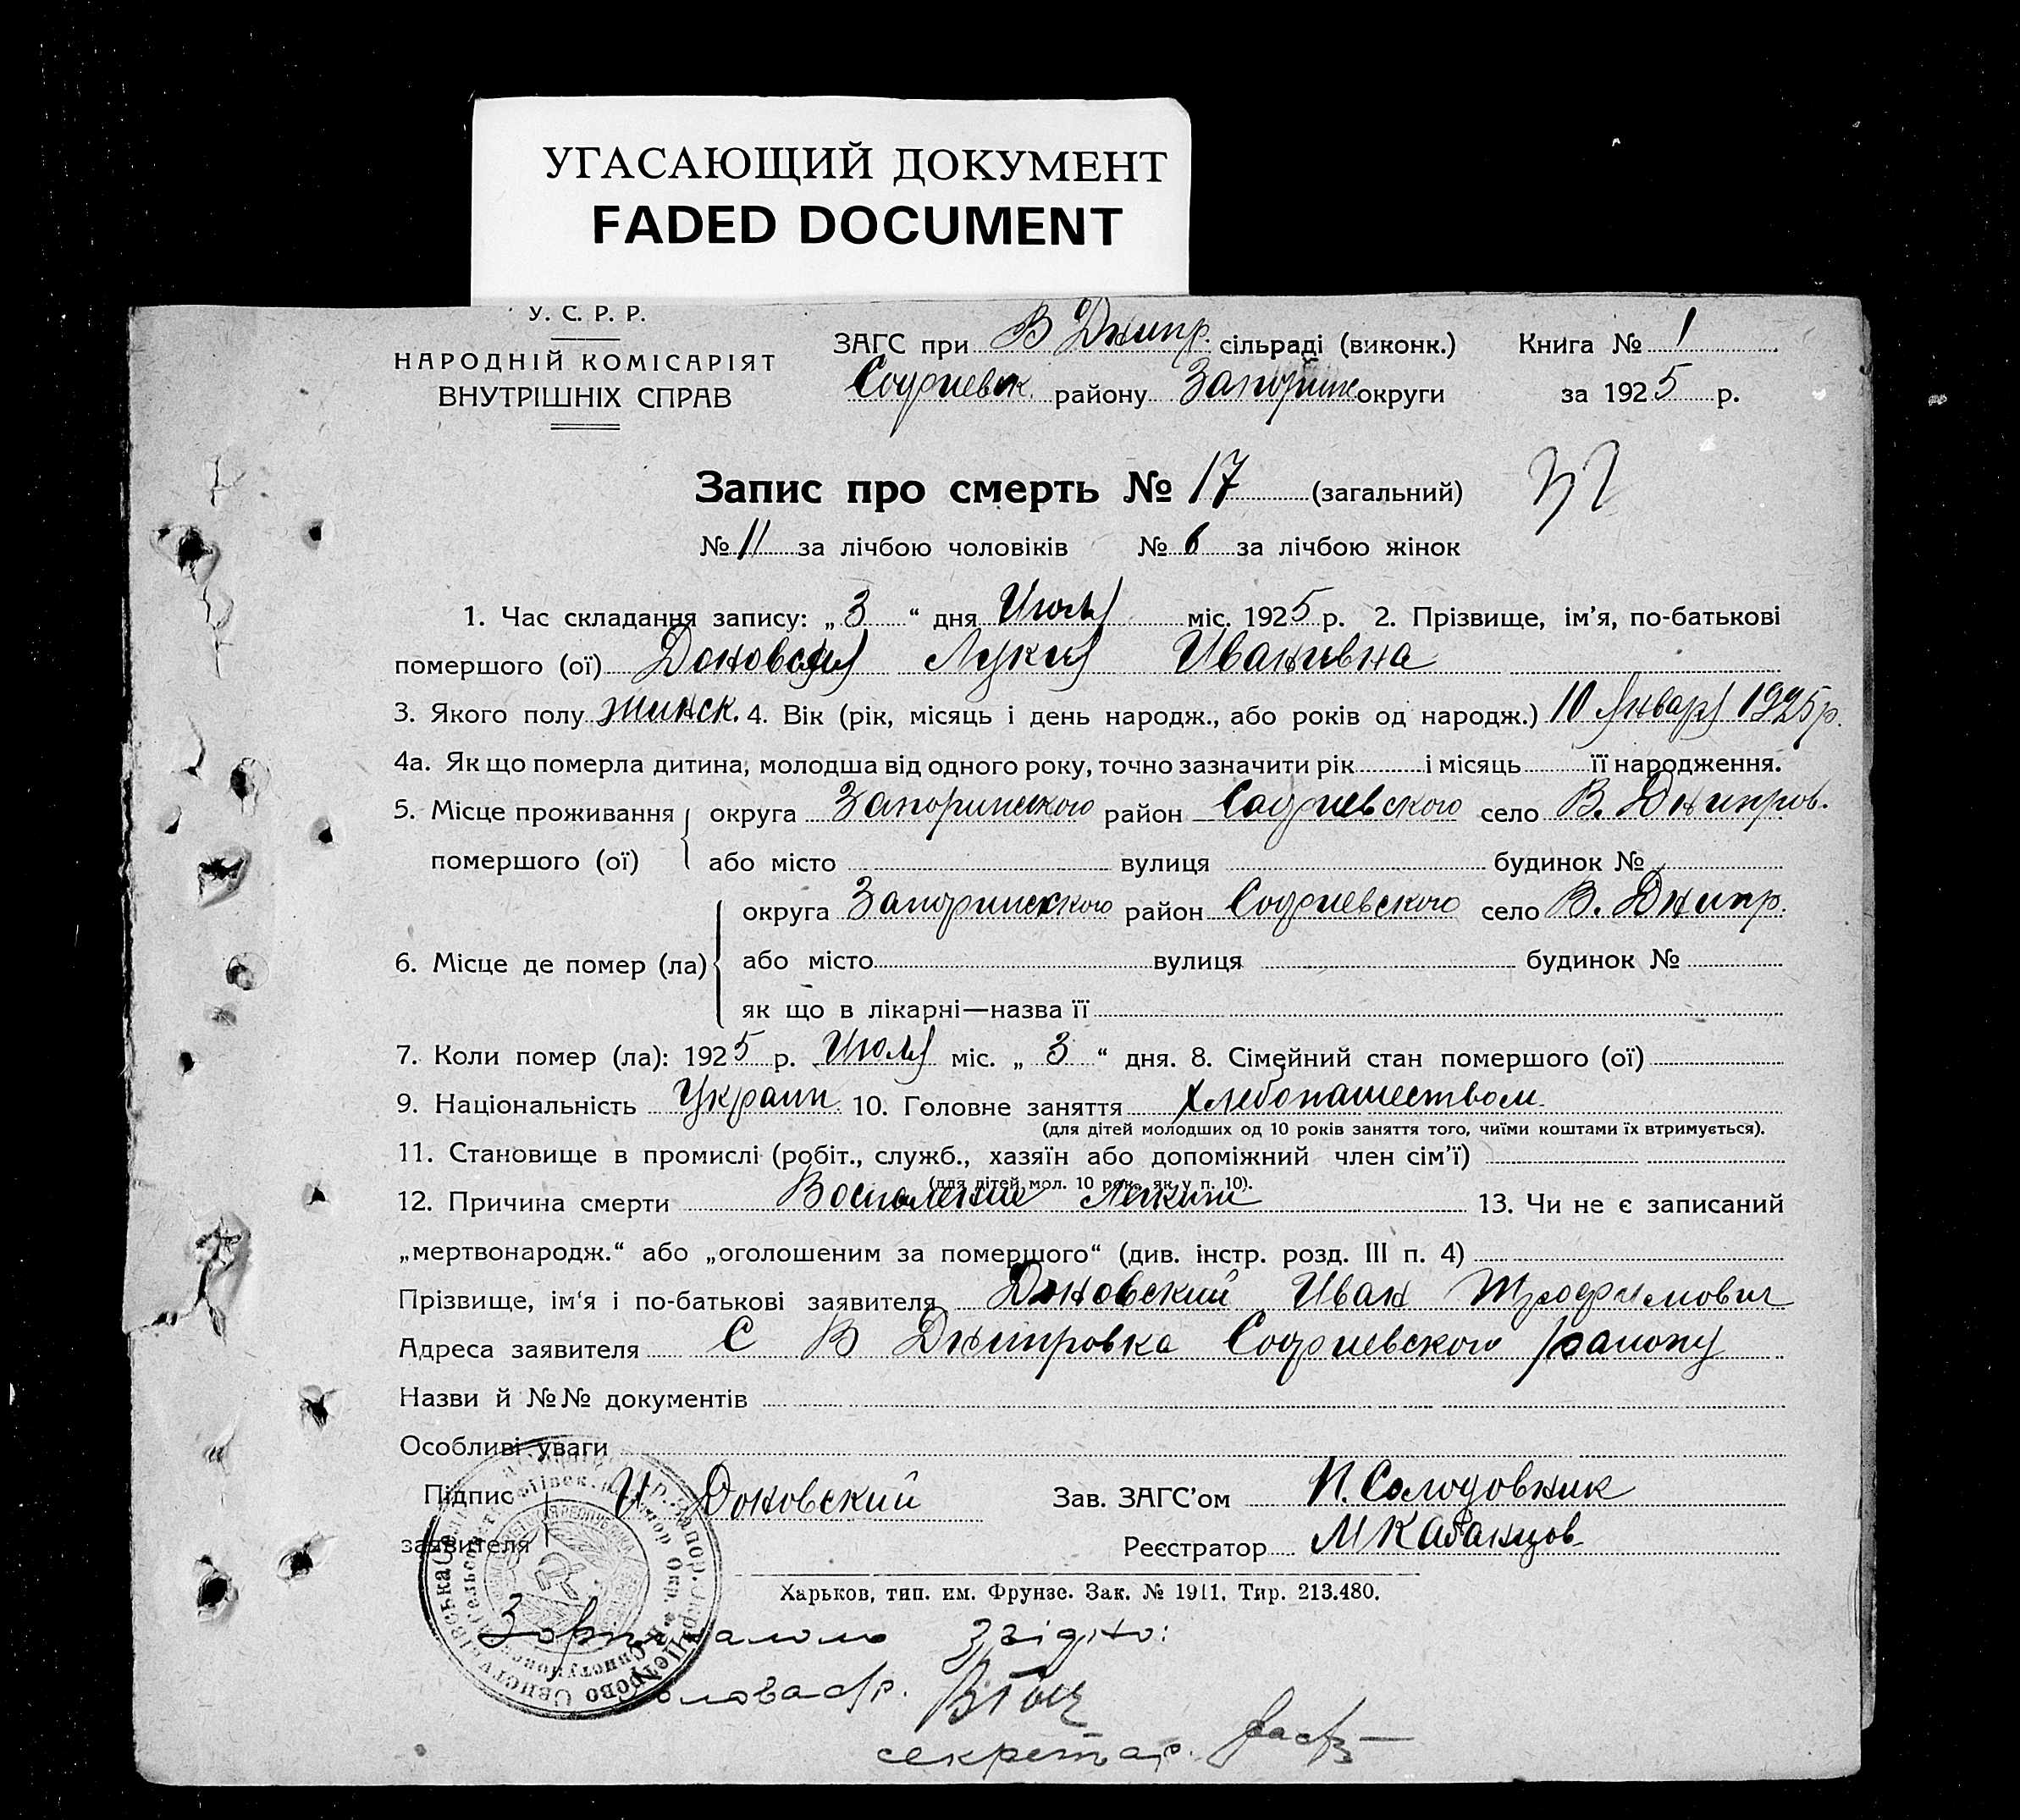 УГАСАЮЩИЙ ДОКУМЕНТ
FADED DOCUMENT
У. С. Р. Р.
НАРОДНІЙ КОМІСАРІЯТ
ВНУТРІШНІХ СПРАВ
ЗАГС при В Днипр. сільраді (виконк.) Книга № 1
Софиевск. району Запориж округи за 1925 р.
Запис про смерть № 17 (загальний)
№ 11 за лічбою чоловіків № 6 за лічбою жінок
1. Час складання запису: „3“ дня Июля міс. 1925 р. 2. Прізвище, ім'я, по-батькові
помершого (ої) Доновская Лукия Ивановна
3. Якого полу жинск. 4. Вік (рік, місяць і день народж., або років од народж.) 10 Января 1925 р.
4а. Як що померла дитина, молодша від одного року, точно зазначити рік і місяць її народження.
5. Місце проживання округа Запорижского район Софиевского село В. Днипров.
помершого (ої) або місто вулиця будинок №
округа Запорижского район Софиевского село В. Днипр.
6. Місце де помер (ла) або місто вулиця будинок №
як що в лікарні—назва її
7. Коли помер (ла): 1925 р. Июля міс. „3“ дня. 8. Сімейний стан помершого (ої)
9. Національність Украин 10. Головне заняття Хлебопашеством
(для дітей молодших од 10 років заняття того, чиїми коштами їх втримується).
11. Становище в промислі (робіт., служб., хазяїн або допоміжний член сім'ї)
(для дітей мол. 10 рок., як у п. 10).
12. Причина смерти Воспаление Легких 13. Чи не є записаний
„мертвонародж.“ або „оголошеним за померщого“ (див. інстр. розд. III п. 4)
Прізвище, ім'я і по-батькові заявителя Доновский Иван Трофимович
Адреса заявителя С В Днипровка Софиевского району
Назви й №№ документів
Особливі уваги
Підпис И Доновский Зав. ЗАГС'ом П. Солодовник
заявителя Реєстратор М Кабанцов
Харьков, тип. им. Фрунзе. Зак. № 1911. Тир. 213.480.
З оригиналом згідно:
Голова с/р.
секретар.